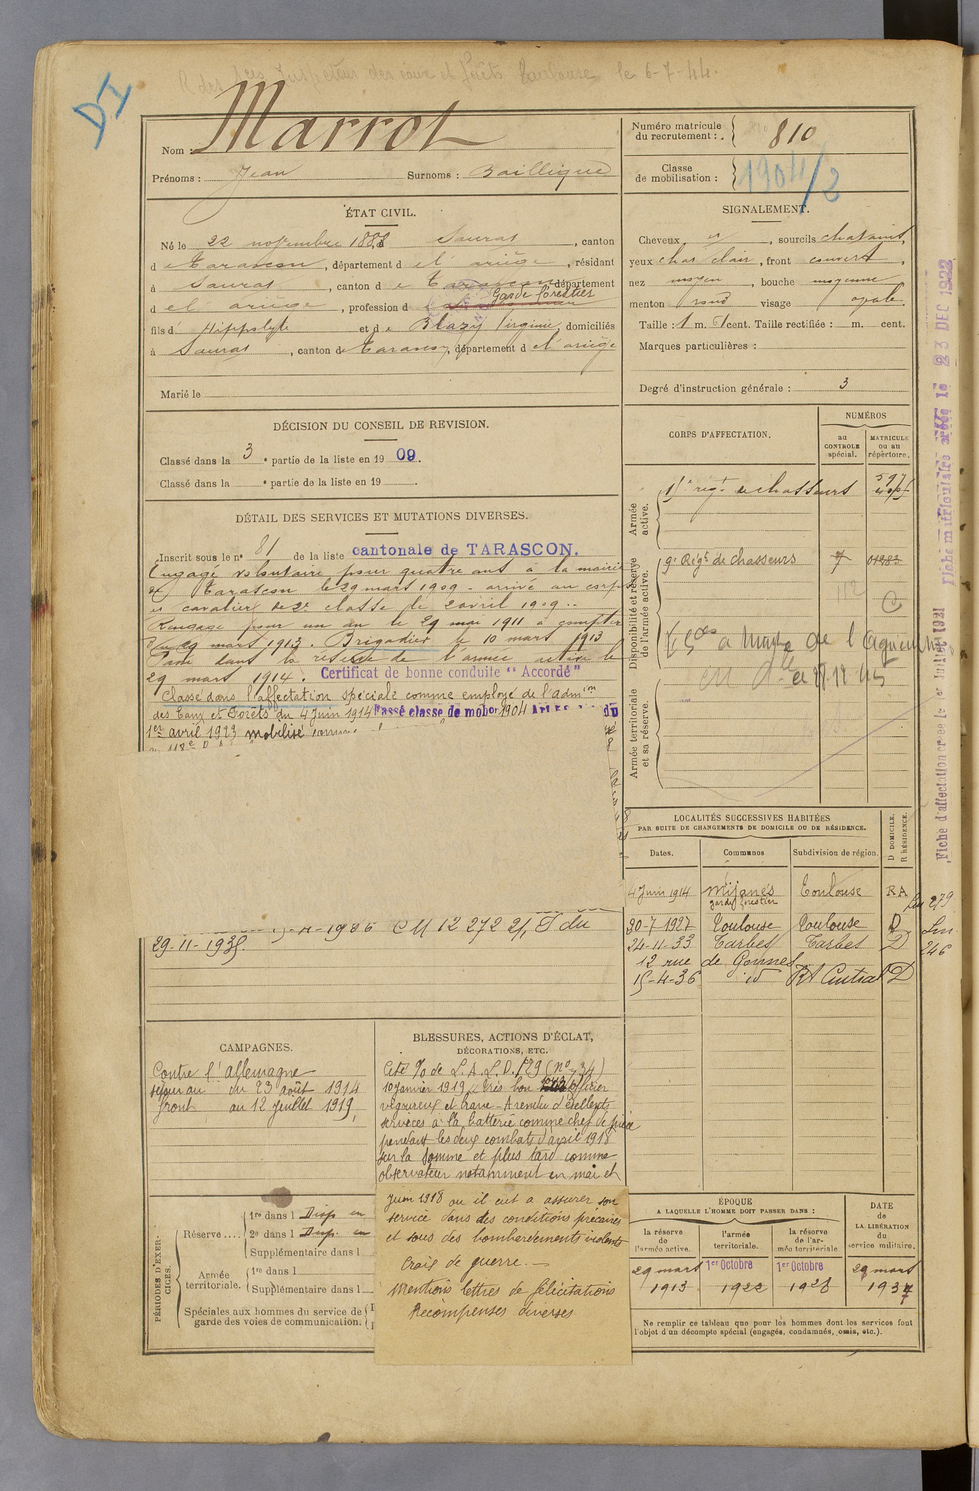 R des Inspecteur des eaux et forêts Toulouse le 6-7-44.
DI
Nom : Marrot
Prénoms : Jean Surnoms : Baillique
Numéro matricule du recrutement : 810
Classe de mobilisation : 1904/2
ÉTAT CIVIL.
Né le 22 novembre 1888 Saurat, canton
de Tarascon, département de l'ariège, résidant
à Saurat, canton de Tarascon, département
de l'ariège, profession de Garde forestier
fils d' Hippolyte et de Blazy Virginie, domiciliés
à Saurat, canton de Tarascon, département de l'ariège
Marié le
SIGNALEMENT.
Cheveux et, sourcils chatains,
yeux chat clair, front couvert,
nez moyen, bouche moyenne
menton rond visage ovale.
Taille : 1 m. cent. Taille rectifiée : m. cent.
Marques particulières :
Degré d'instruction générale : 3
DÉCISION DU CONSEIL DE REVISION.
Classé dans la 3e partie de la liste en 1909.
Classé dans la e partie de la liste en 19
DÉTAIL DES SERVICES ET MUTATIONS DIVERSES.
Inscrit sous le n° 81 de la liste cantonale de TARASCON.
Engagé volontaire pour quatre ans à la mairie
de Tarascon le 29 mars 1909 - arrivé au corps
et cavalier de 2e classe le 2 avril 1909..
Rengagé pour un an le 29 mai 1911 à compter
du 29 mars 1913. Brigadier le 10 mars 1913
Passé dans la réserve de l'armée active le
29 mars 1914. Certificat de bonne conduite "Accordé"
Classé dans l'affectation spéciale comme employé de l'admion
des Eaux et Forêts du 4 Juin 1914 Passé classe de mobon 1904 du
1er avril 1923 mobilisé
CM 12 272 21, du
29-11-1935
CORPS D'AFFECTATION.
NUMÉROS
au CONTROLE spécial.
MATRICULE ou au répertoire.
Armée active.
1er régt de chasseurs 597
Disponibilité et réserve de l'armée active.
19e Régt de chasseurs 7 01983
112
C
Armée territoriale et sa réserve.
Fiche matriculaire créée le 23 DEC 1922
Fiche d'affectation créée le 1er Juillet 1931
LOCALITÉS SUCCESSIVES HABITÉES
PAR SUITE DE CHANGEMENTS DE DOMICILE OU DE RÉSIDENCE.
Dates. Communes Subdivision de région. D DOMICILE. R RÉSIDENCE.
4 Juin 1914 Mijanès garde forestier Toulouse RA
30-7-1927 Toulouse Toulouse D
24-11-33 Tarbes Tarbes D
12 rue de Gonnes
15-4-36 id RA Central D
279
246
CAMPAGNES.
Contre l'allemagne
séjour au du 23 août 1914
front au 12 Juillet 1919,
BLESSURES, ACTIONS D'ÉCLAT,
DÉCORATIONS, ETC.
Cité à l'o de L.A.L.D./29 (No 34)
10 Janvier 1919. Très bon officier
vigoureux et brave - A rendu d'excellents
services à la batterie comme chef de pièce
pendant les deux combats d'avril 1918
sur la Somme et plus tard comme
observateur notamment en mai et
Juin 1918 où il eut à assurer son
service dans des conditions précaires
et sous des bombardements violents
Croix de guerre. -
Mentions lettres de félicitations
Récompenses diverses
PÉRIODES D'EXERCICES.
Réserve....
1re dans l Disp. en
2e dans l Disp. en
Supplémentaire dans l
Armée territoriale.
1re dans l
Supplémentaire dans l
Spéciales aux hommes du service de
garde des voies de communication.
ÉPOQUE
A LAQUELLE L'HOMME DOIT PASSER DANS :
DATE de LA LIBÉRATION du service militaire.
la réserve de l'armée active.
l'armée territoriale.
la réserve de l'armée territoriale
29 mars 1913
1er Octobre 1922
1er Octobre 1928
29 mars 1937
Ne remplir ce tableau que pour les hommes dont les services font
l'objet d'un décompte spécial (engagés, condamnés, omis, etc.).